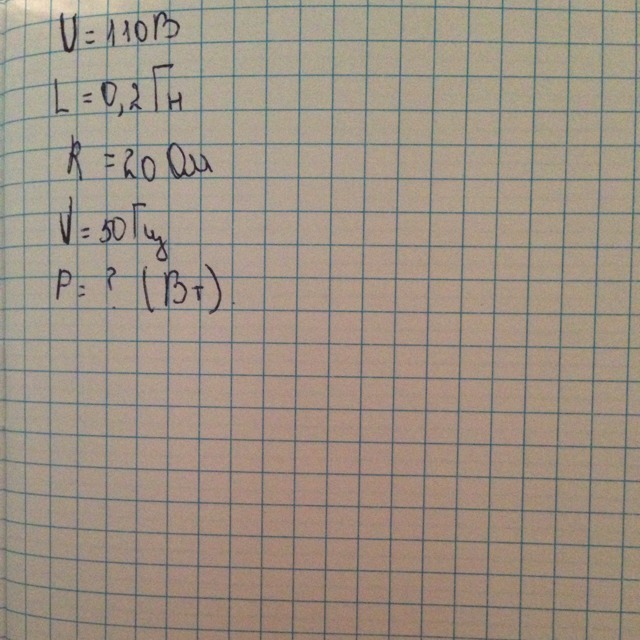 U = 110В
L = 0,2 Гн
R = 20 Ом
ν = 50 Гц
P = ? (Вт)